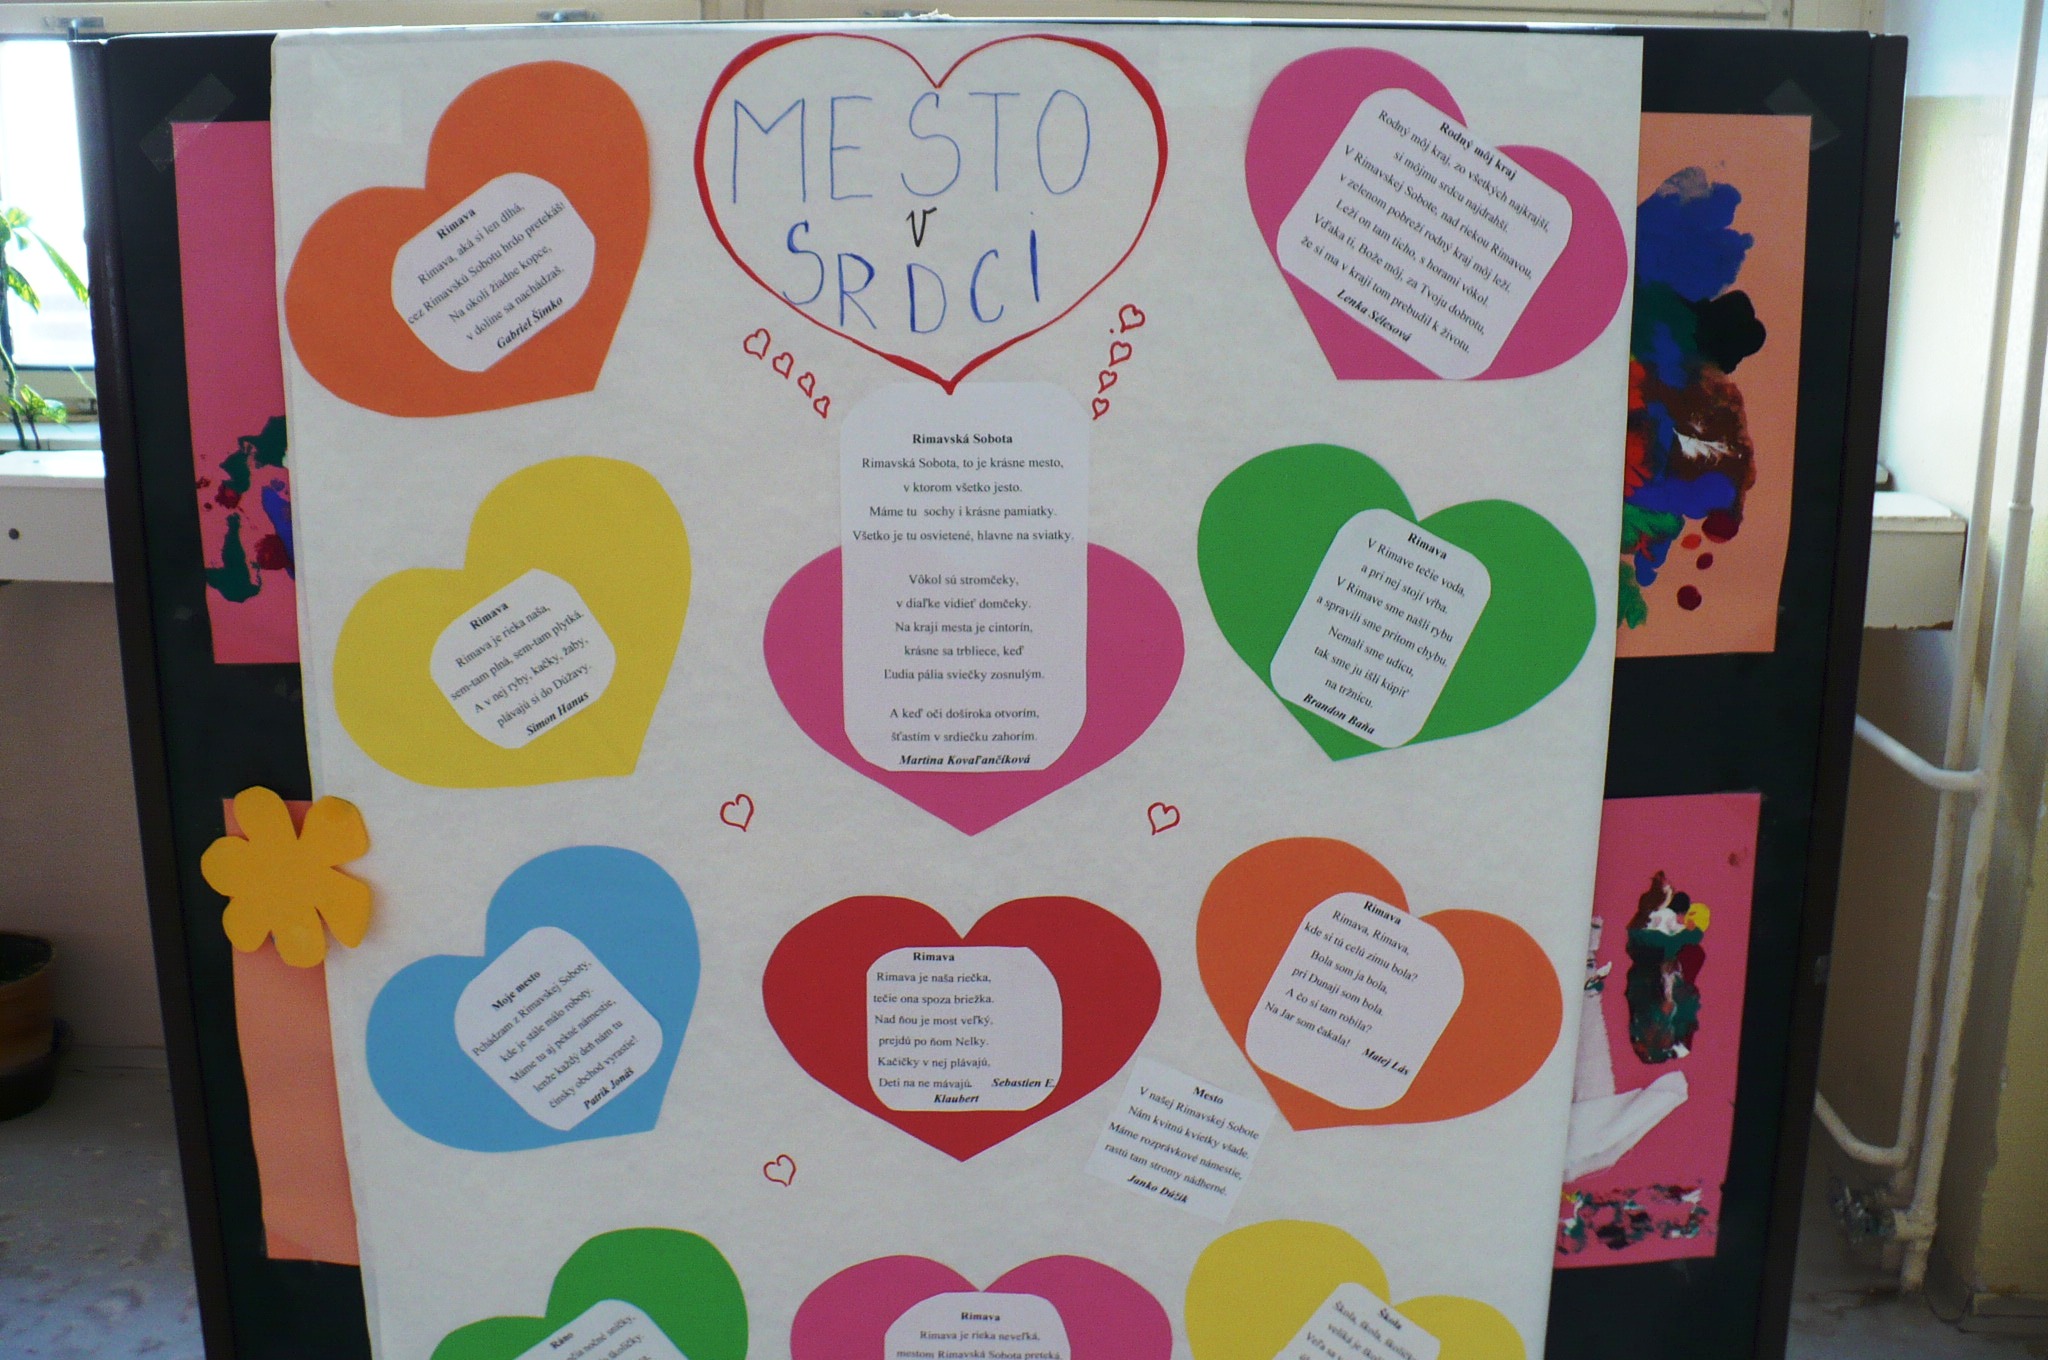 MESTO
v
SRDCI
Rimava
Rimava, aká si len dlhá,
cez Rimavskú Sobotu hrdo pretekáš!
Na okolí žiadne kopce,
v doline sa nachádzaš.
Gabriel Šimko
Rodný môj kraj
Rodný môj kraj, zo všetkých najkrajší,
si môjmu srdcu najdrahší.
V Rimavskej Sobote, nad riekou Rimavou,
v zelenom pobreží rodný kraj môj leží.
Leží on tam ticho, s horami vôkol.
Vďaka ti, Bože môj, za Tvoju dobrotu,
že si ma v kraji tom prebudil k životu.
Lenka Sélesová
Rimavská Sobota
Rimavská Sobota, to je krásne mesto,
v ktorom všetko jesto.
Máme tu sochy i krásne pamiatky.
Všetko je tu osvietené, hlavne na sviatky.
Vôkol sú stromčeky,
v diaľke vidieť domčeky.
Na kraji mesta je cintorín,
krásne sa trbliece, keď
Ľudia pália sviečky zosnulým.
A keď oči doširoka otvorím,
šťastím v srdiečku zahorím.
Martina Kovaľančíková
Rimava
Rimava je rieka naša,
sem-tam plná, sem-tam plytká.
A v nej ryby, kačky, žaby,
plávajú si do Dúžavy.
Simon Hanus
Rimava
V Rimave tečie voda,
a pri nej stojí vŕba.
V Rimave sme našli rybu
a spravili sme pritom chybu.
Nemali sme udicu,
tak sme ju išli kúpiť
na tržnicu.
Brandon Baňa
Moje mesto
Pchádzam z Rimavskej Soboty,
kde je stále málo roboty.
Máme tu aj pekné námestie,
lenže každý deň nám tu
čínsky obchod vyrastie!
Patrik Jonáš
Rimava
Rimava je naša riečka,
tečie ona spoza briežka.
Nad ňou je most veľký,
prejdú po ňom Nelky.
Kačičky v nej plávajú,
Deti na ne mávajú. Sebastien E.
Klaubert
Rimava
Rimava, Rimava,
kde si tú celú zimu bola?
Bola som ja bola,
pri Dunaji som bola.
A čo si tam robila?
Na Jar som čakala! Matej Lás
Mesto
V našej Rimavskej Sobote
Nám kvitnú kvietky všade.
Máme rozprávkové námestie,
rastú tam stromy nádherné.
Janko Dúžik
Ráno
nočné sníčky,
školičky.
Rimava
Rimava je rieka neveľká,
mestom Rimavská Sobota preteká.
Škola
Škola, škola,
veliká je
Veľa sa